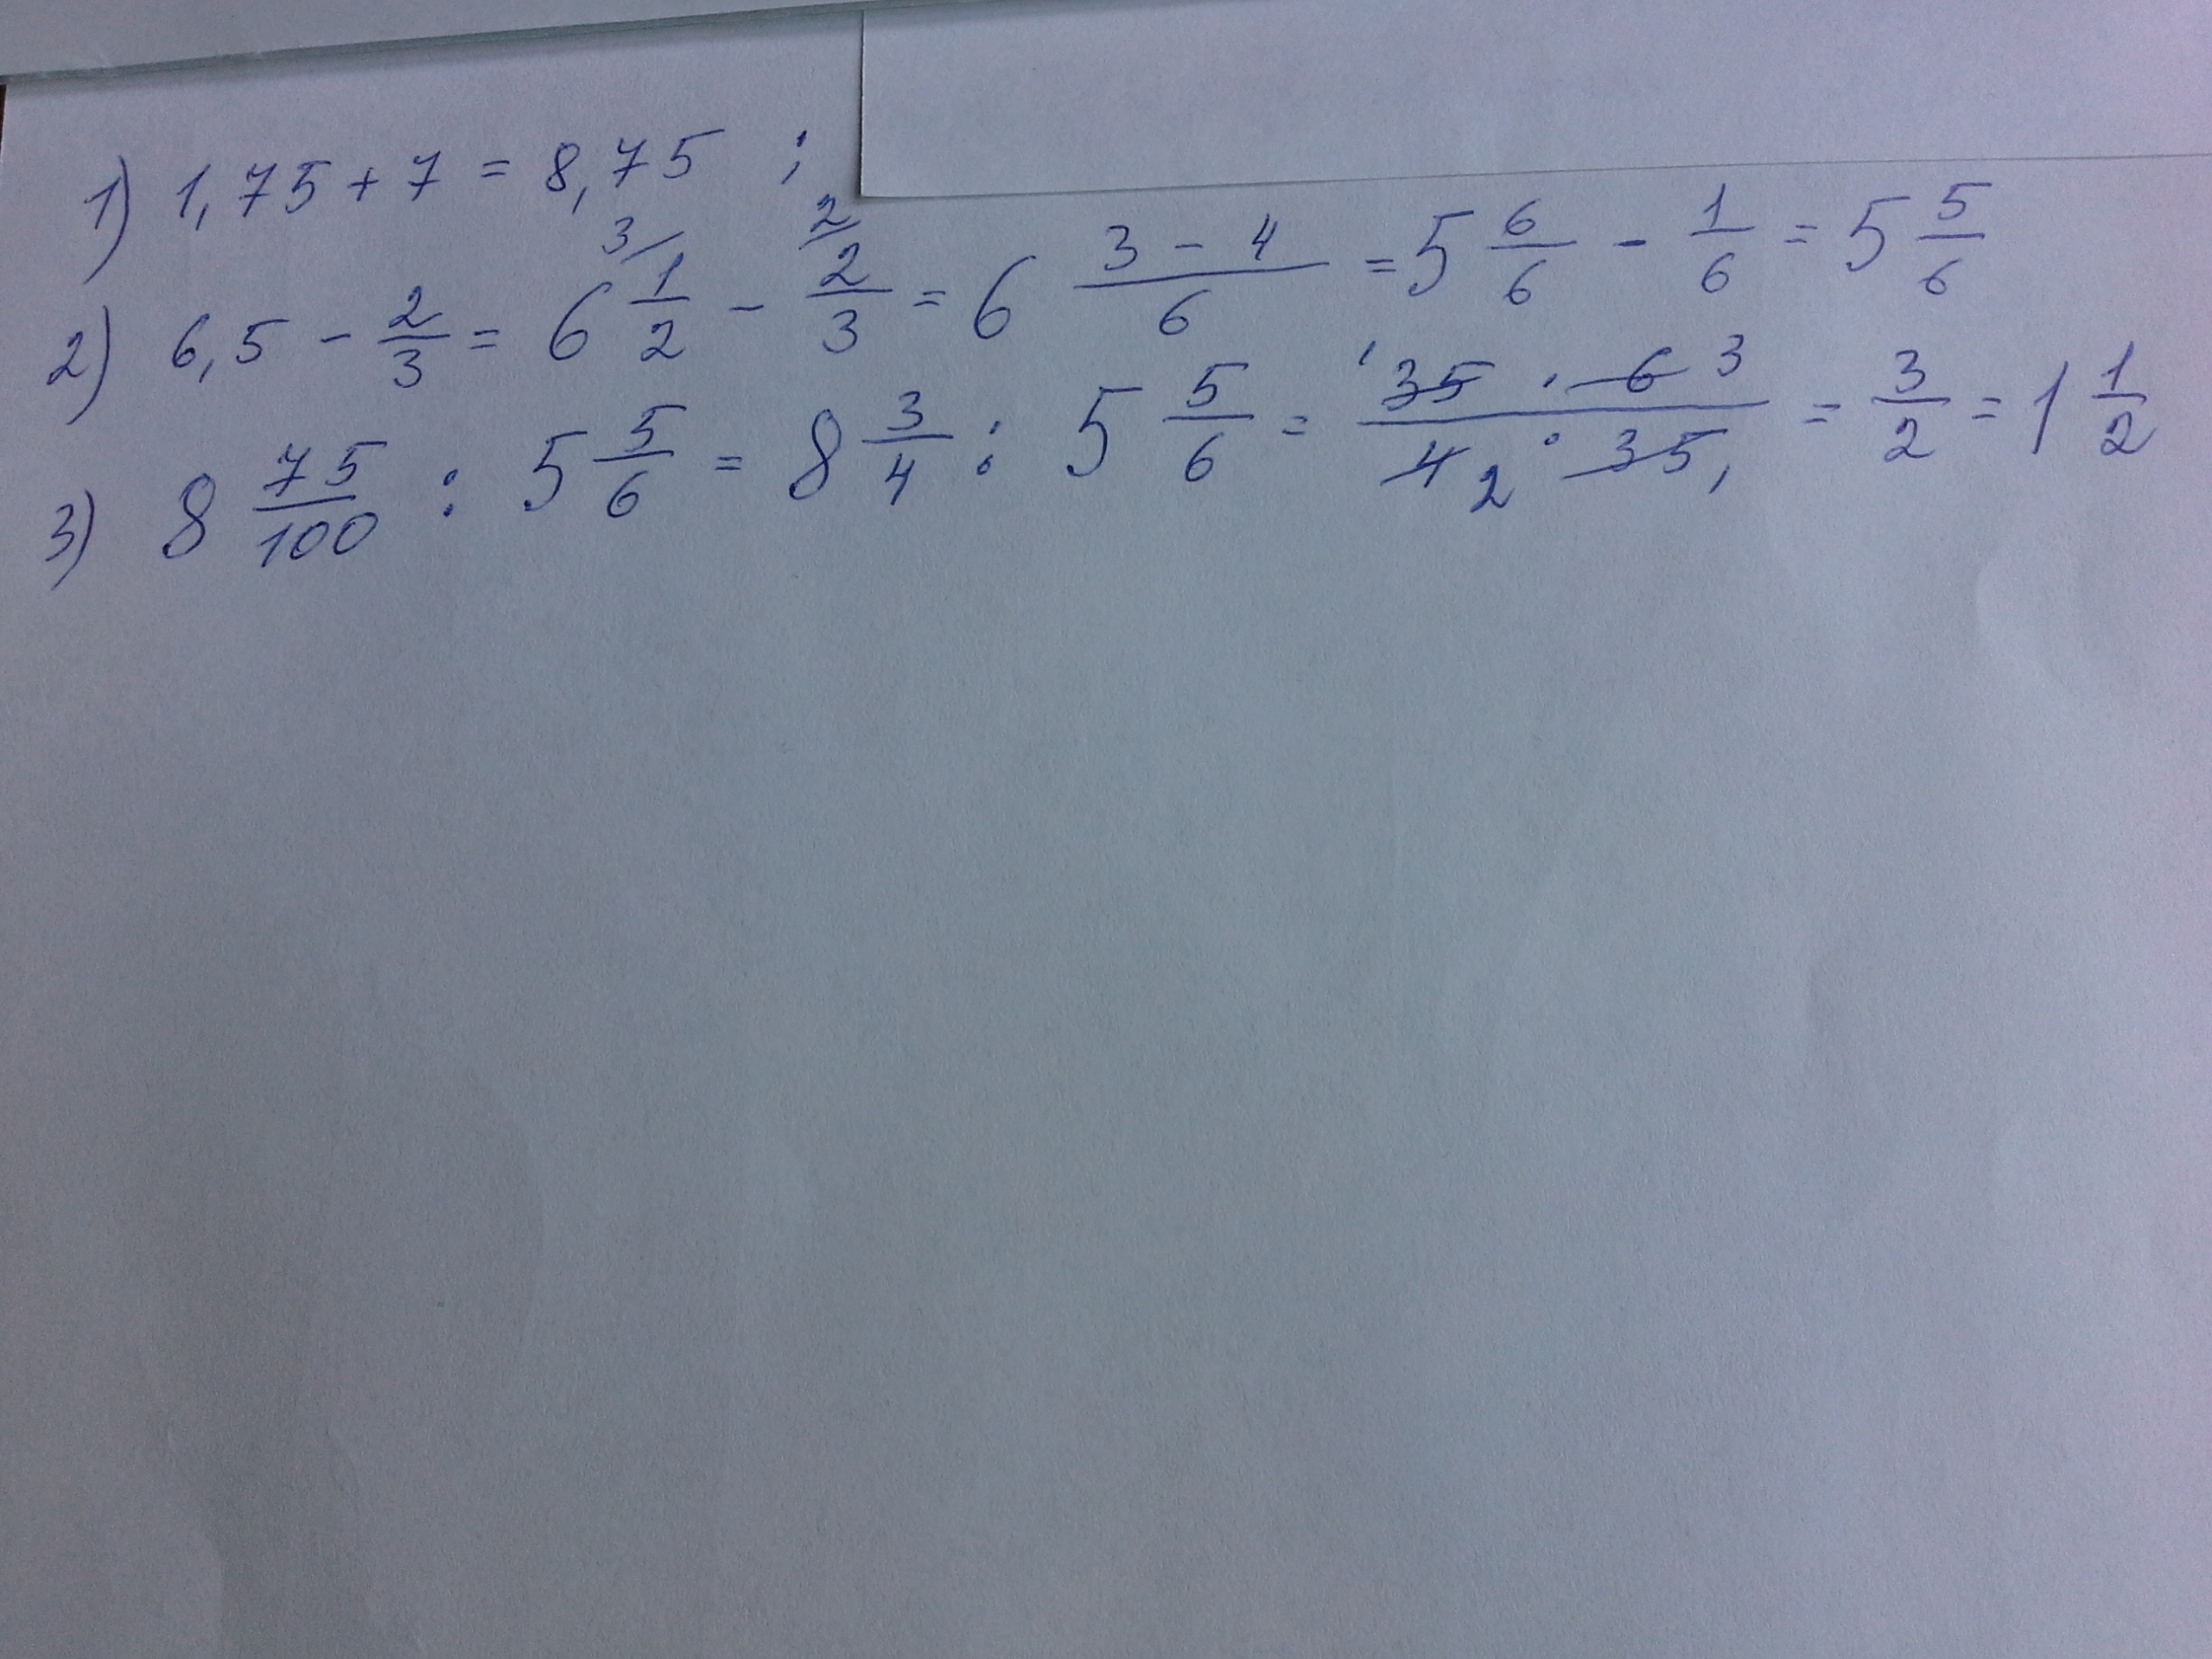 1) 1,75 + 7 = 8,75 ;
2) 6,5 - 2/3 = 6 1/2 3/ - 2/3 2/ = 6 (3 - 4)/6 = 5 6/6 - 1/6 = 5 5/6
3) 8 75/100 : 5 5/6 = 8 3/4 : 5 5/6 = (1 35 · 6 3)/(4 2 · 35 1) = 3/2 = 1 1/2